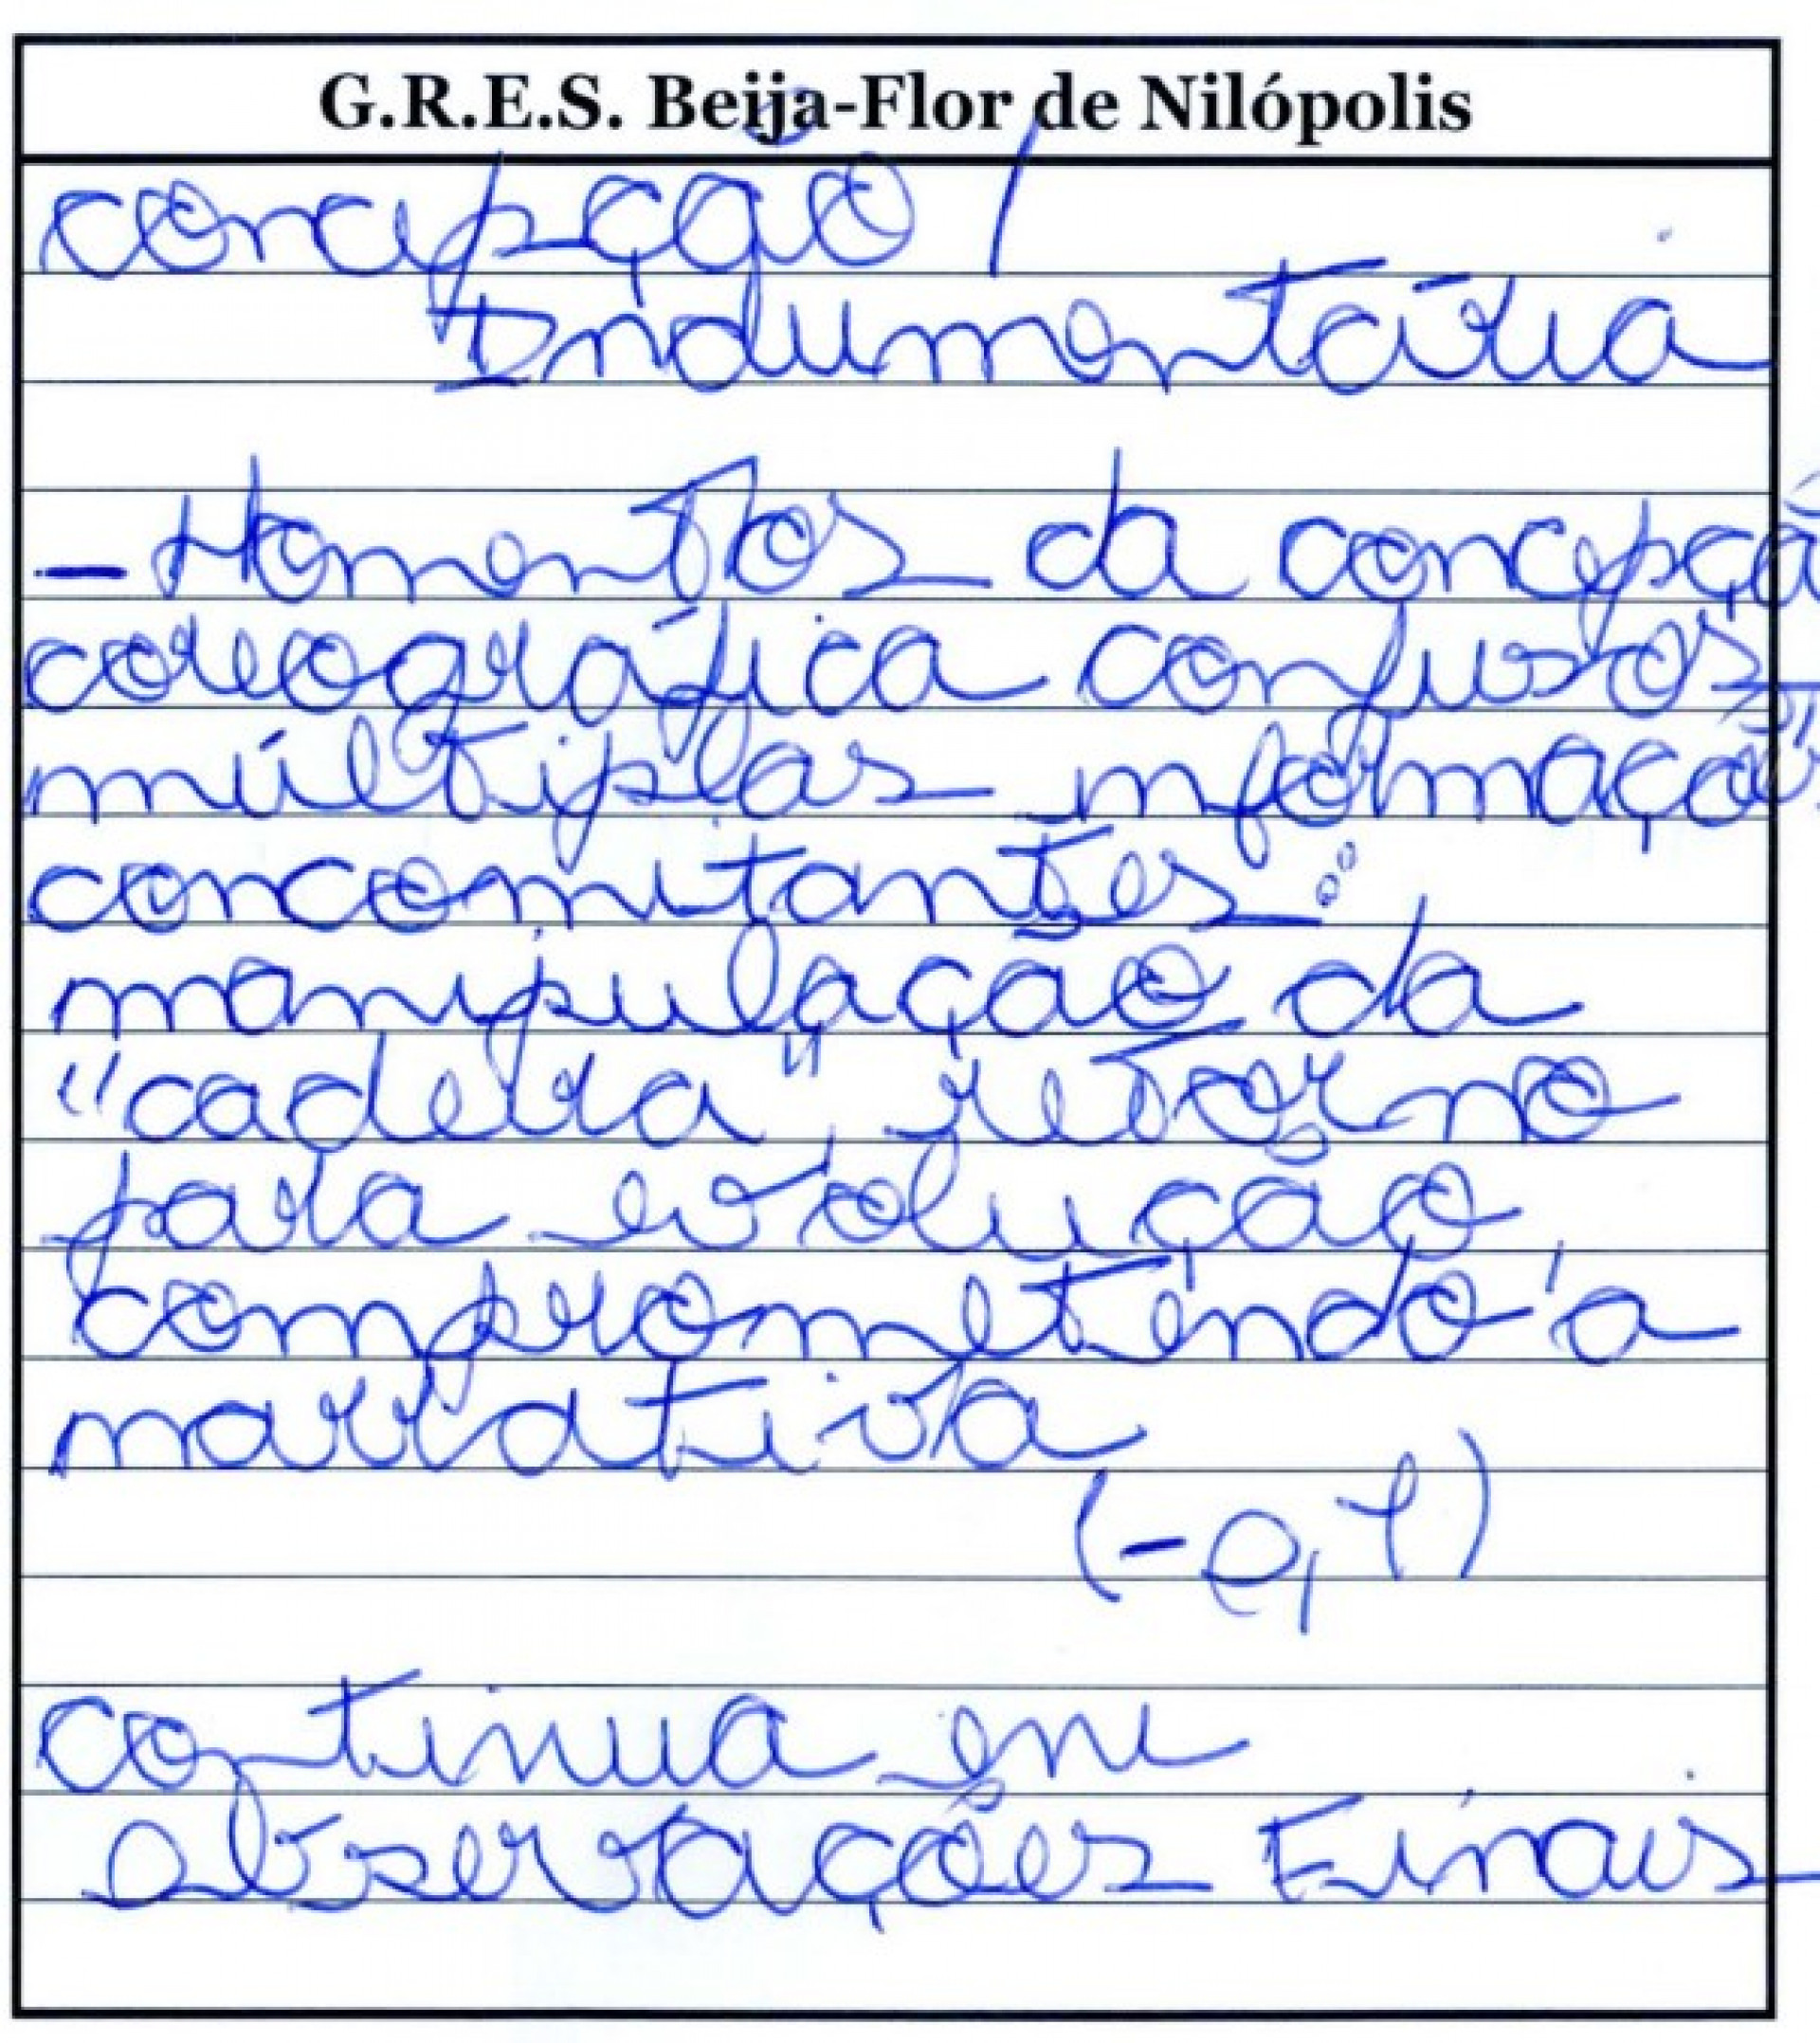 G.R.E.S. Beija-Flor de Nilópolis
concepção /
Indumentária
- Momentos da concepção
coreográfica confusos
múltiplas informações
concomitantes:
manipulação da
"cadeira", retorno
para evolução,
comprometendo a
narrativa
(-0,1)
continua em
observações Finais